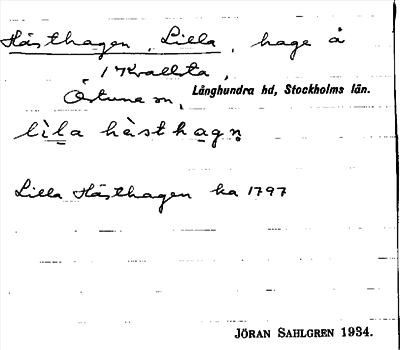 Hästhagen, Lilla, hage å
1 Krallsta,
Östuna sn, Långhundra hd, Stockholms län.
lìla hàsthagn̥
Lilla Hästhagen ha 1797
JÖRAN SAHLGREN 1934.